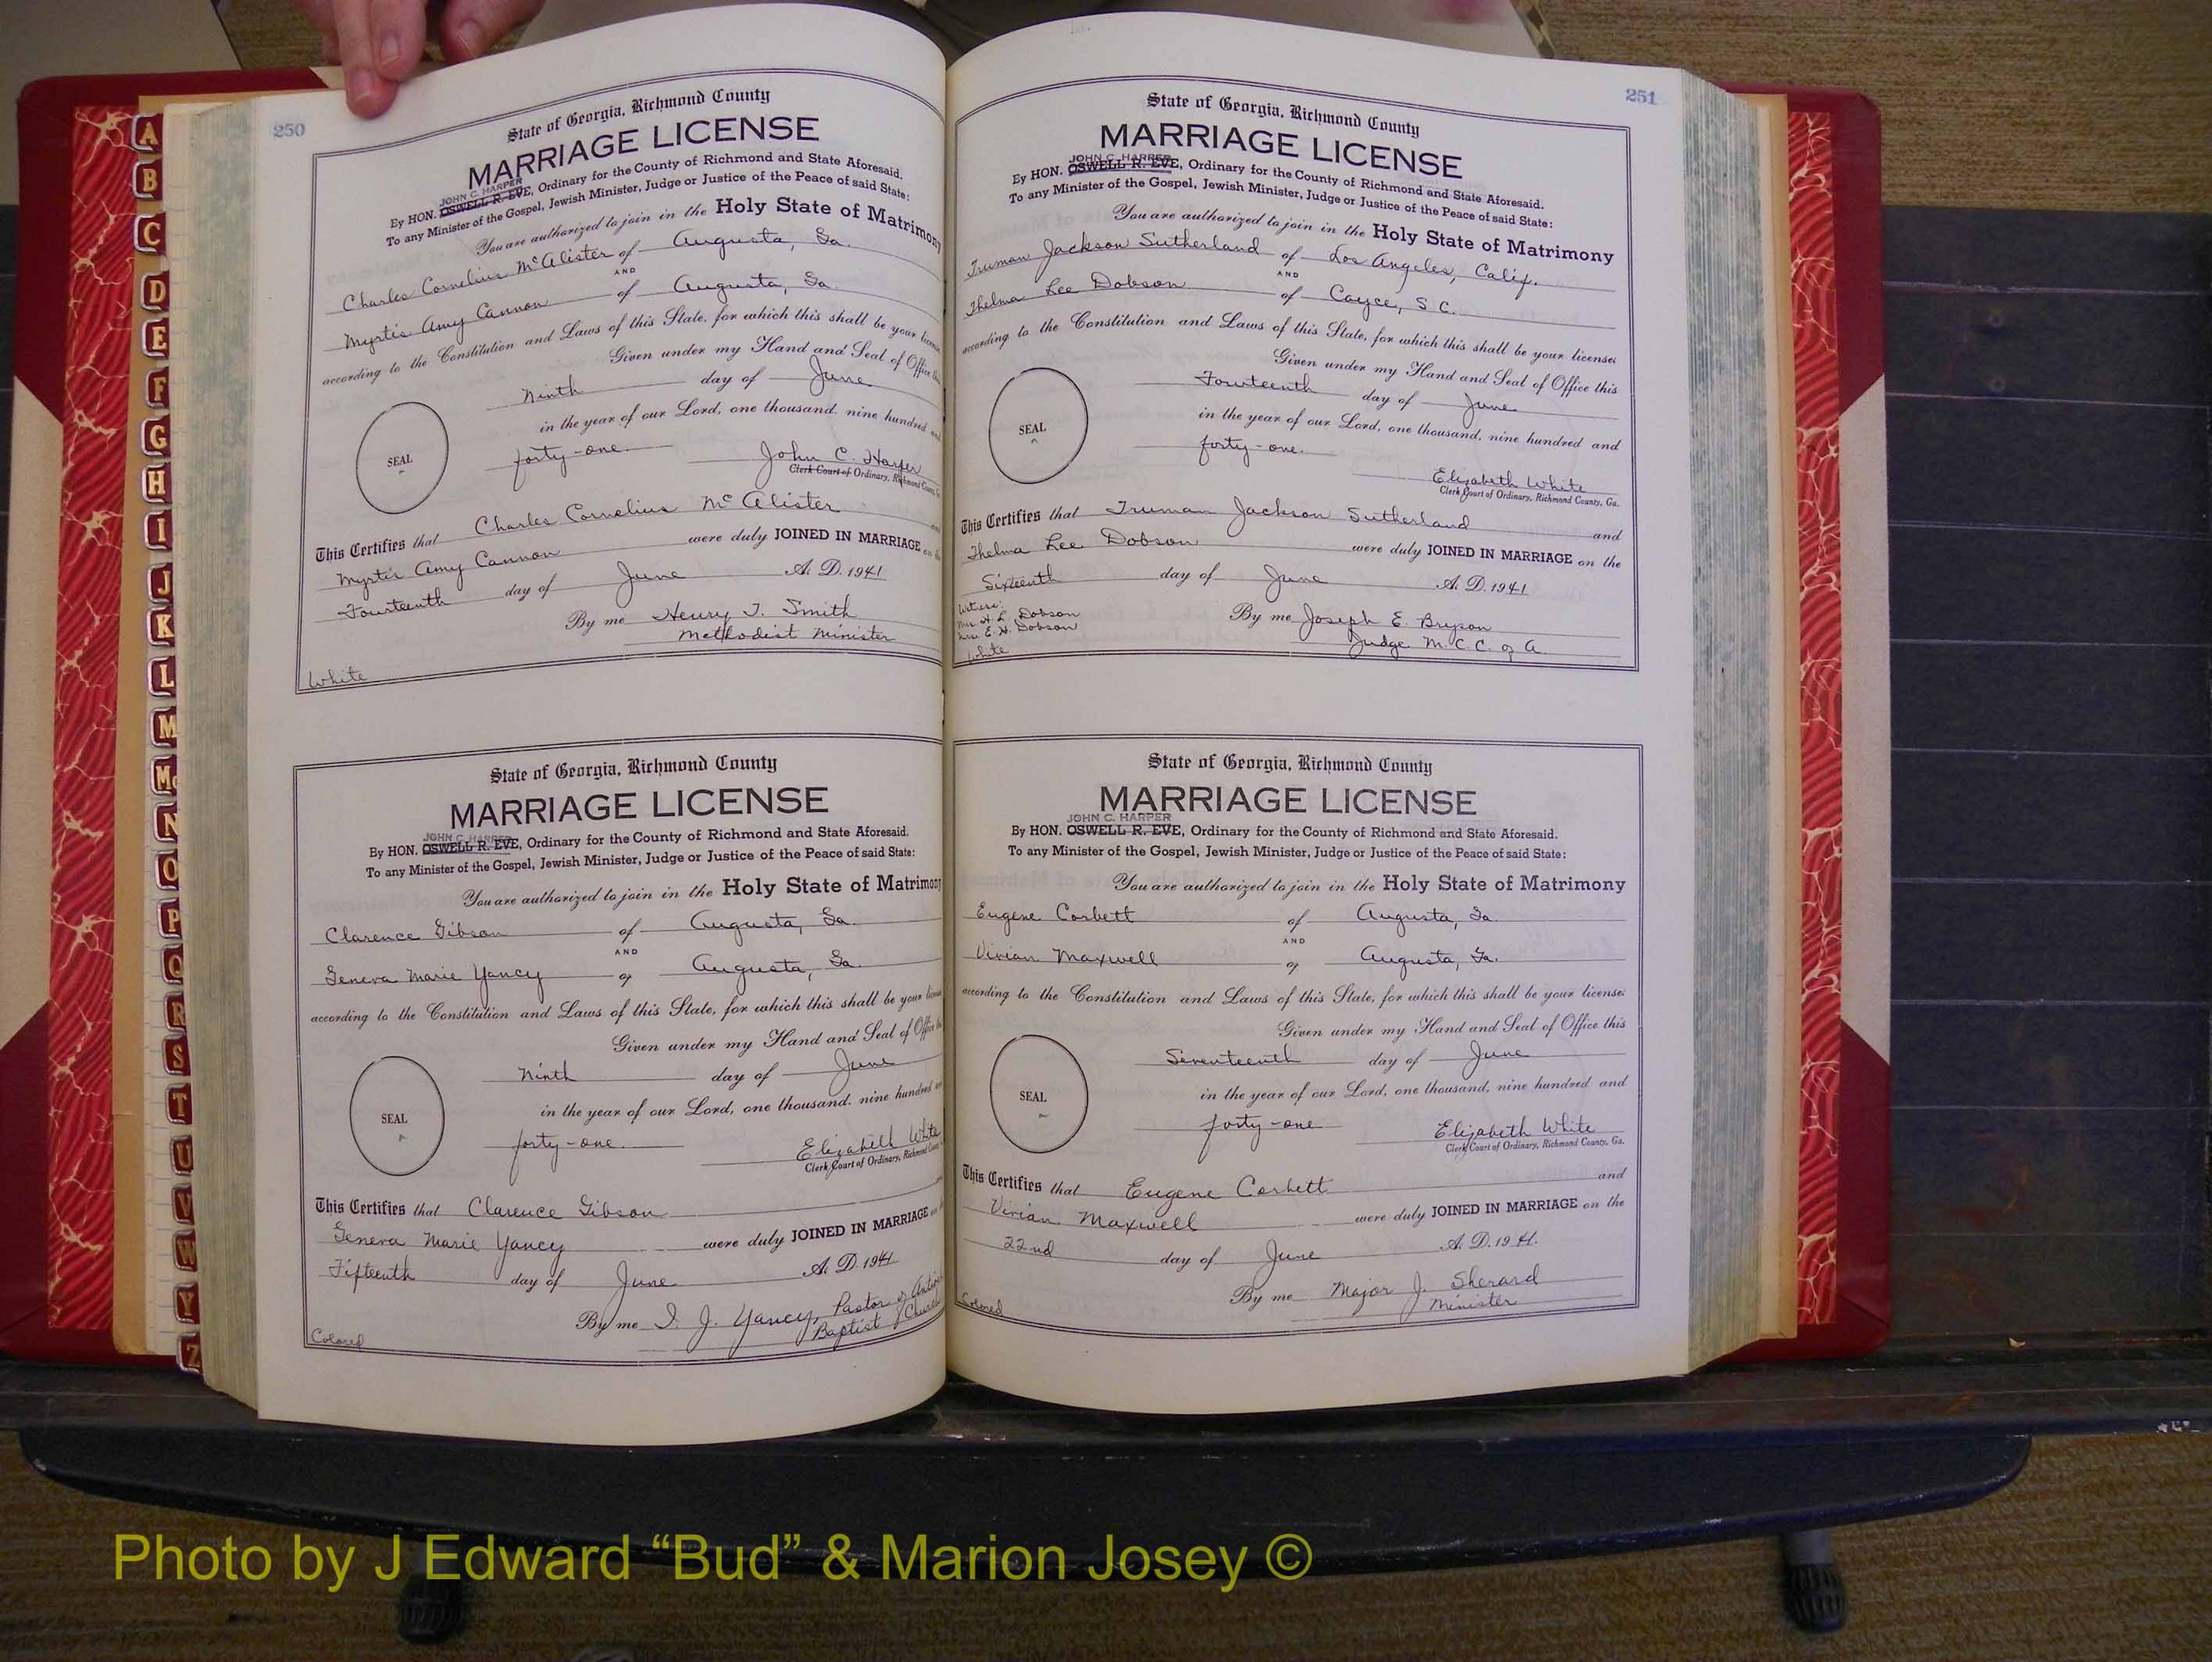 250
State of Georgia, Richmond County
MARRIAGE LICENSE
JOHN C. HARPER
By HON. OSWELL R. EVE, Ordinary for the County of Richmond and State Aforesaid.
To any Minister of the Gospel, Jewish Minister, Judge or Justice of the Peace of said State:
You are authorized to join in the Holy State of Matrimony
Charles Cornelius McAlister of Augusta, Ga.
AND
Myrtis Amy Cannon of Augusta, Ga.
according to the Constitution and Laws of this State, for which this shall be your license
Given under my Hand and Seal of Office this
Ninth day of June
in the year of our Lord, one thousand, nine hundred and
SEAL
forty-one. John C. Harper
Clerk Court of Ordinary, Richmond County, Ga
This Certifies that Charles Cornelius McAlister and
Myrtis Amy Cannon were duly JOINED IN MARRIAGE on the
Fourteenth day of June A. D. 1941
By me Henry T. Smith
Methodist Minister
White
State of Georgia, Richmond County
MARRIAGE LICENSE
JOHN C. HARPER
By HON. OSWELL R. EVE, Ordinary for the County of Richmond and State Aforesaid.
To any Minister of the Gospel, Jewish Minister, Judge or Justice of the Peace of said State:
You are authorized to join in the Holy State of Matrimony
Clarence Gibson of Augusta, Ga.
AND
Geneva Marie Yancy of Augusta, Ga.
according to the Constitution and Laws of this State, for which this shall be your license
Given under my Hand and Seal of Office this
Ninth day of June
in the year of our Lord, one thousand, nine hundred and
SEAL
forty-one. Elizabeth White
Clerk Court of Ordinary, Richmond County
This Certifies that Clarence Gibson
Geneva Marie Yancy were duly JOINED IN MARRIAGE on the
Fifteenth day of June A. D. 1941
By me I. J. Yancy, Pastor of
Baptist Church
Colored
251
State of Georgia, Richmond County
MARRIAGE LICENSE
JOHN C. HARPER
By HON. OSWELL R. EVE, Ordinary for the County of Richmond and State Aforesaid.
To any Minister of the Gospel, Jewish Minister, Judge or Justice of the Peace of said State:
You are authorized to join in the Holy State of Matrimony
Truman Jackson Sutherland of Los Angeles, Calif.
AND
Thelma Lee Dobson of Cayce, S.C.
according to the Constitution and Laws of this State, for which this shall be your license:
Given under my Hand and Seal of Office this
Fourteenth day of June
in the year of our Lord, one thousand, nine hundred and
SEAL
forty-one. Elizabeth White
Clerk Court of Ordinary, Richmond County, Ga.
This Certifies that Truman Jackson Sutherland and
Thelma Lee Dobson were duly JOINED IN MARRIAGE on the
Sixteenth day of June A. D. 1941
Witness:
Mr. H. L. Dobson
Mrs. E. H. Dobson
By me Joseph E. Bryson
Judge M.C.C. of A.
White
State of Georgia, Richmond County
MARRIAGE LICENSE
JOHN C. HARPER
By HON. OSWELL R. EVE, Ordinary for the County of Richmond and State Aforesaid.
To any Minister of the Gospel, Jewish Minister, Judge or Justice of the Peace of said State:
You are authorized to join in the Holy State of Matrimony
Eugene Corbett of Augusta, Ga.
AND
Vivian Maxwell of Augusta, Ga.
according to the Constitution and Laws of this State, for which this shall be your license:
Given under my Hand and Seal of Office this
Seventeenth day of June
in the year of our Lord, one thousand, nine hundred and
SEAL
forty-one Elizabeth White
Clerk Court of Ordinary, Richmond County, Ga.
This Certifies that Eugene Corbett and
Vivian Maxwell were duly JOINED IN MARRIAGE on the
22nd day of June A. D. 1941.
By me Major J. Sherard
Minister
Colored
A
B
C
D
E
F
G
H
I
J
K
L
M
Mc
N
O
P
Q
R
S
T
U
V
W
Y
Z
Photo by J Edward “Bud” & Marion Josey ©